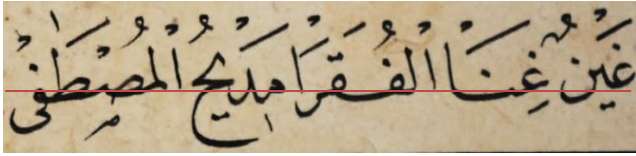 غَيْنٌ غِنَا الْفُقَرَا مَدِيحُ الْمُصْطَفَىْ